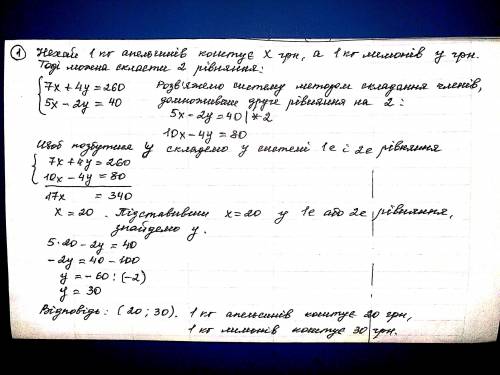 ① Нехай 1 кг апельсинів коштує x грн, а 1 кг лимонів y грн.
Тоді можна скласти 2 рівняння:
7x + 4y = 260
5x - 2y = 40
Розв'яжемо систему методом складання членів,
домноживши друге рівняння на 2:
5x - 2y = 40 | *2
10x - 4y = 80
Щоб позбутися y складемо у системі 1е і 2е рівняння
7x + 4y = 260
10x - 4y = 80
17x = 340
x = 20. Підставивши x = 20 у 1е або 2е рівняння,
знайдемо y.
5·20 - 2y = 40
-2y = 40 - 100
y = -60 : (-2)
y = 30
Відповідь: (20; 30). 1 кг апельсинів коштує 20 грн,
1 кг лимонів коштує 30 грн.